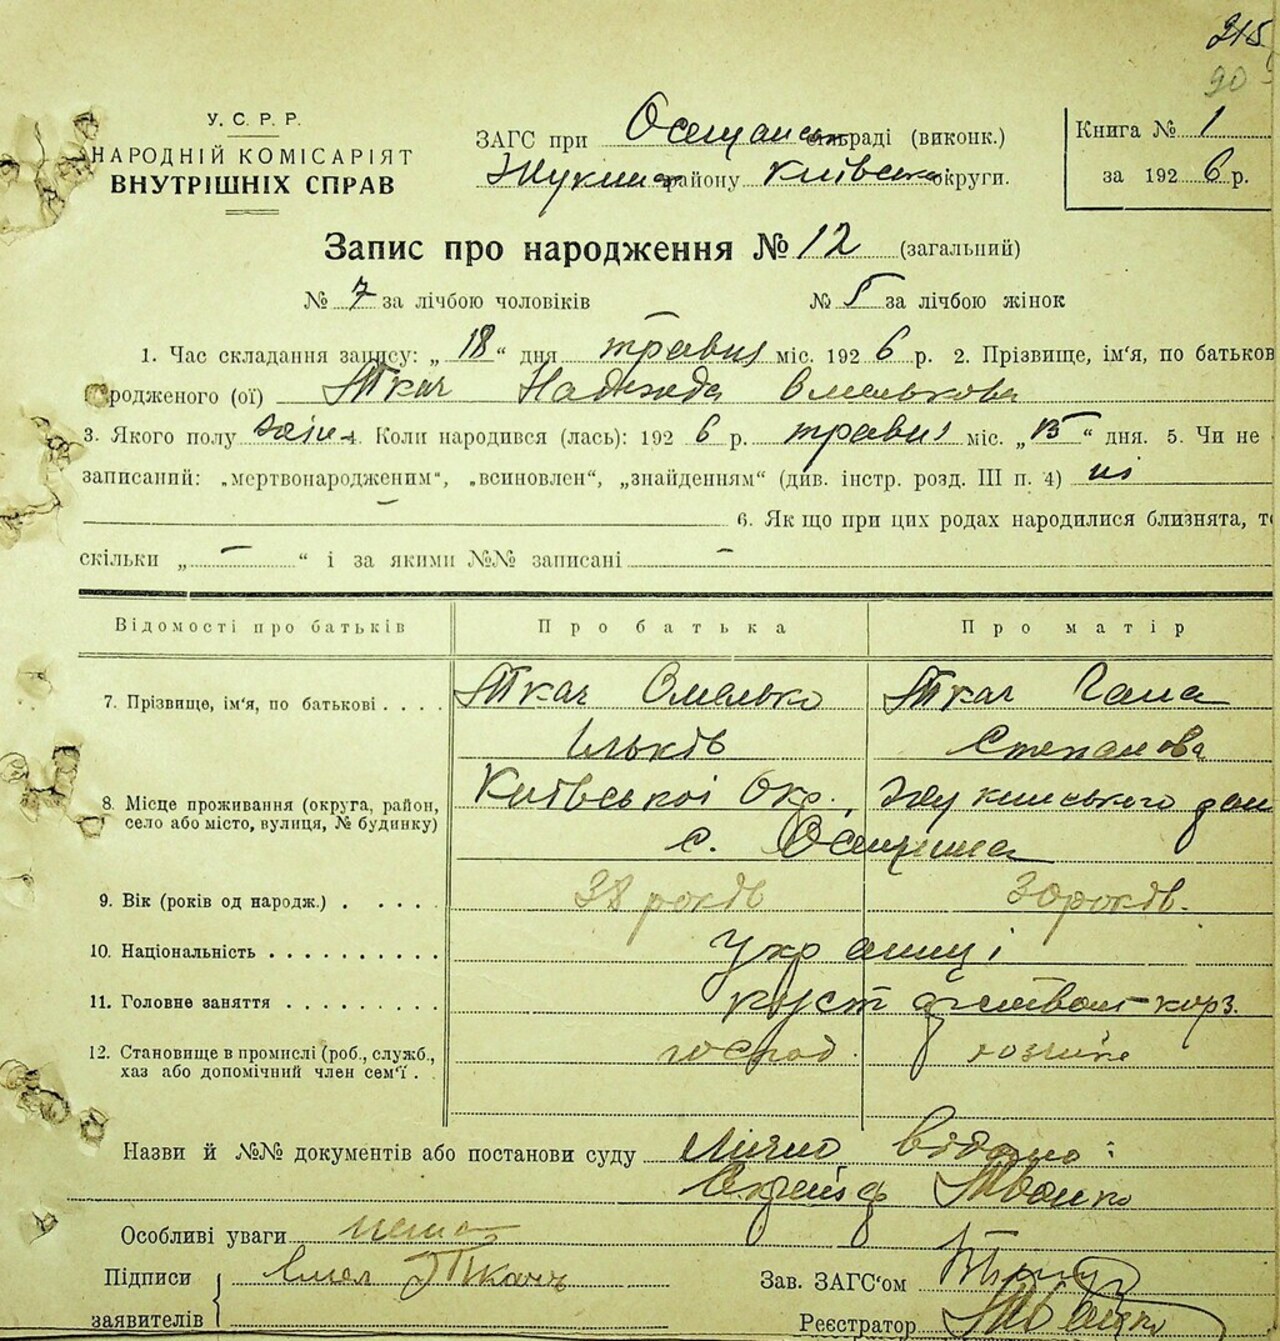 215
90
У. С. Р. Р.
НАРОДНІЙ КОМІСАРІЯТ
ВНУТРІШНІХ СПРАВ
ЗАГС при Осещанськ раді (виконк.)
Жукин району Київськ округи.
Книга № 1
за 1926 р.
Запис про народження № 12 (загальний)
№ 7 за лічбою чоловіків № 5 за лічбою жінок
1. Час складання запису: „ 18 “ дня травня міс. 1926 р. 2. Прізвище, ім'я, по батьков
родженого (ої) Ткач Надежда Омелькова
3. Якого полу жін 4. Коли народився (лась): 1926 р. травня міс. „ 15 “ дня. 5. Чи не
записаний: „мертвонародженим“, „всиновлен“, „знайденням“ (див. інстр. розд. III п. 4) ні
6. Як що при цих родах народилися близнята, то
скільки „ — “ і за якими №№ записані —
Відомості про батьків Про батька Про матір
7. Прізвище, ім'я, по батькові . . . . Ткач Омелько Ткач Гана
Ільків Степанова
8. Місце проживання (округа, район, село або місто, вулиця, № будинку) Київської Окр., Жукинського рай
с. Осещина
9. Вік (років од народж.) . . . . . 38 років 30 років.
10. Національність . . . . . . . . . . Українці
11. Головне заняття . . . . . . . . . куст корз.
12. Становище в промислі (роб., служб., хаз або допомічний член сем'ї . . господ.
Назви й №№ документів або постанови суду Лично відомо:
Іванко
Особливі уваги нема
Підписи Емел Ткачь
заявителів
Зав. ЗАГС'ом
Реєстратор Іванко